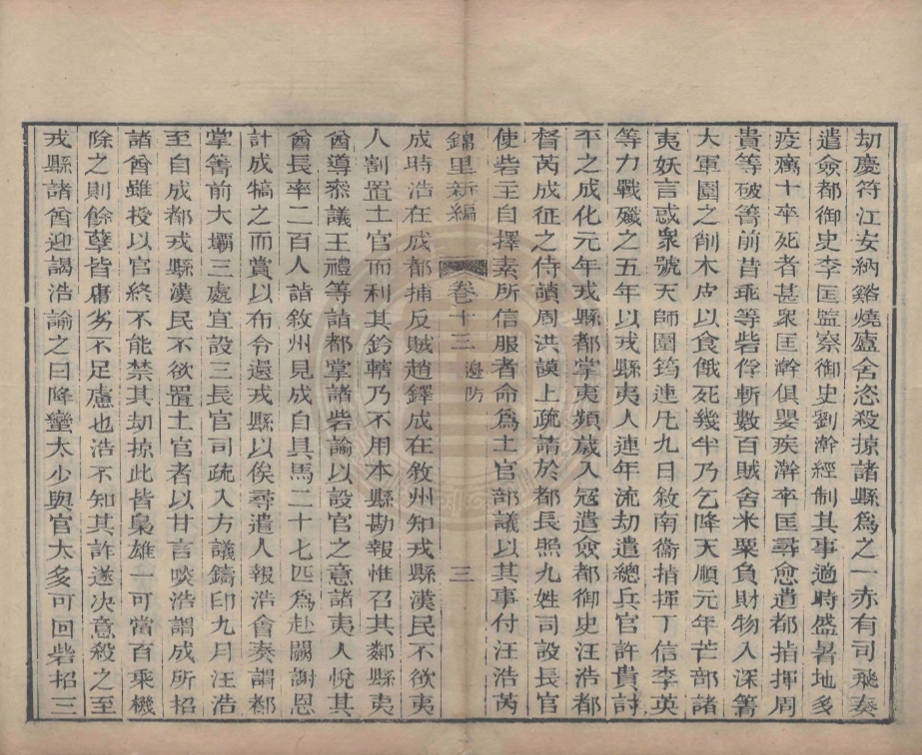 劫慶符江安納谿燒廬舍恣殺掠諸縣爲之一赤有司飛奏
遣僉都御史李匡監察御史劉瀚經制其事適時盛暑地多
疫癘十卒死者甚衆匡瀚俱嬰疾瀚卒匡尋愈遣都指揮周
貴等破箐前昔乖等砦俘斬數百賊舍米粟負財物入深箐
大軍圍之削木皮以食餓死幾半乃乞降天順元年芒部諸
夷妖言惑衆號天師圍筠連凡九日敘南衞指揮丁信李英
等力戰殲之五年以戎縣夷人連年流劫遣總兵官許貴討
平之成化元年戎縣都掌夷頻歲入冦遣僉都御史汪浩都
督芮成征之侍讀周洪謨上疏請於都長照九姓司設長官
使砦主自擇素所信服者命爲土官部議以其事付汪浩芮
錦里新編 卷十三 邊防 三
成時浩在成都捕反賊趙鐸成在敘州知戎縣漢民不欲夷
人割置土官而利其鈐轄乃不用本縣勘報惟召其鄰縣夷
酋導叅議王禮等詣都掌諸砦諭以設官之意諸夷人悅其
酋長率二百人詣敘州見成自具馬二十七匹爲赴闕謝恩
計成犒之而賞以布令還戎縣以俟尋遣人報浩會奏謂都
掌箐前大壩三處宜設三長官司疏入方議鑄印九月汪浩
至自成都戎縣漢民不欲置土官者以甘言啖浩謂成所招
諸酋雖授以官終不能禁其劫掠此皆梟雄一可當百乘機
除之則餘孽皆庸劣不足慮也浩不知其詐遂决意殺之至
戎縣諸酋迎謁浩諭之曰降蠻太少與官太多可回砦招三